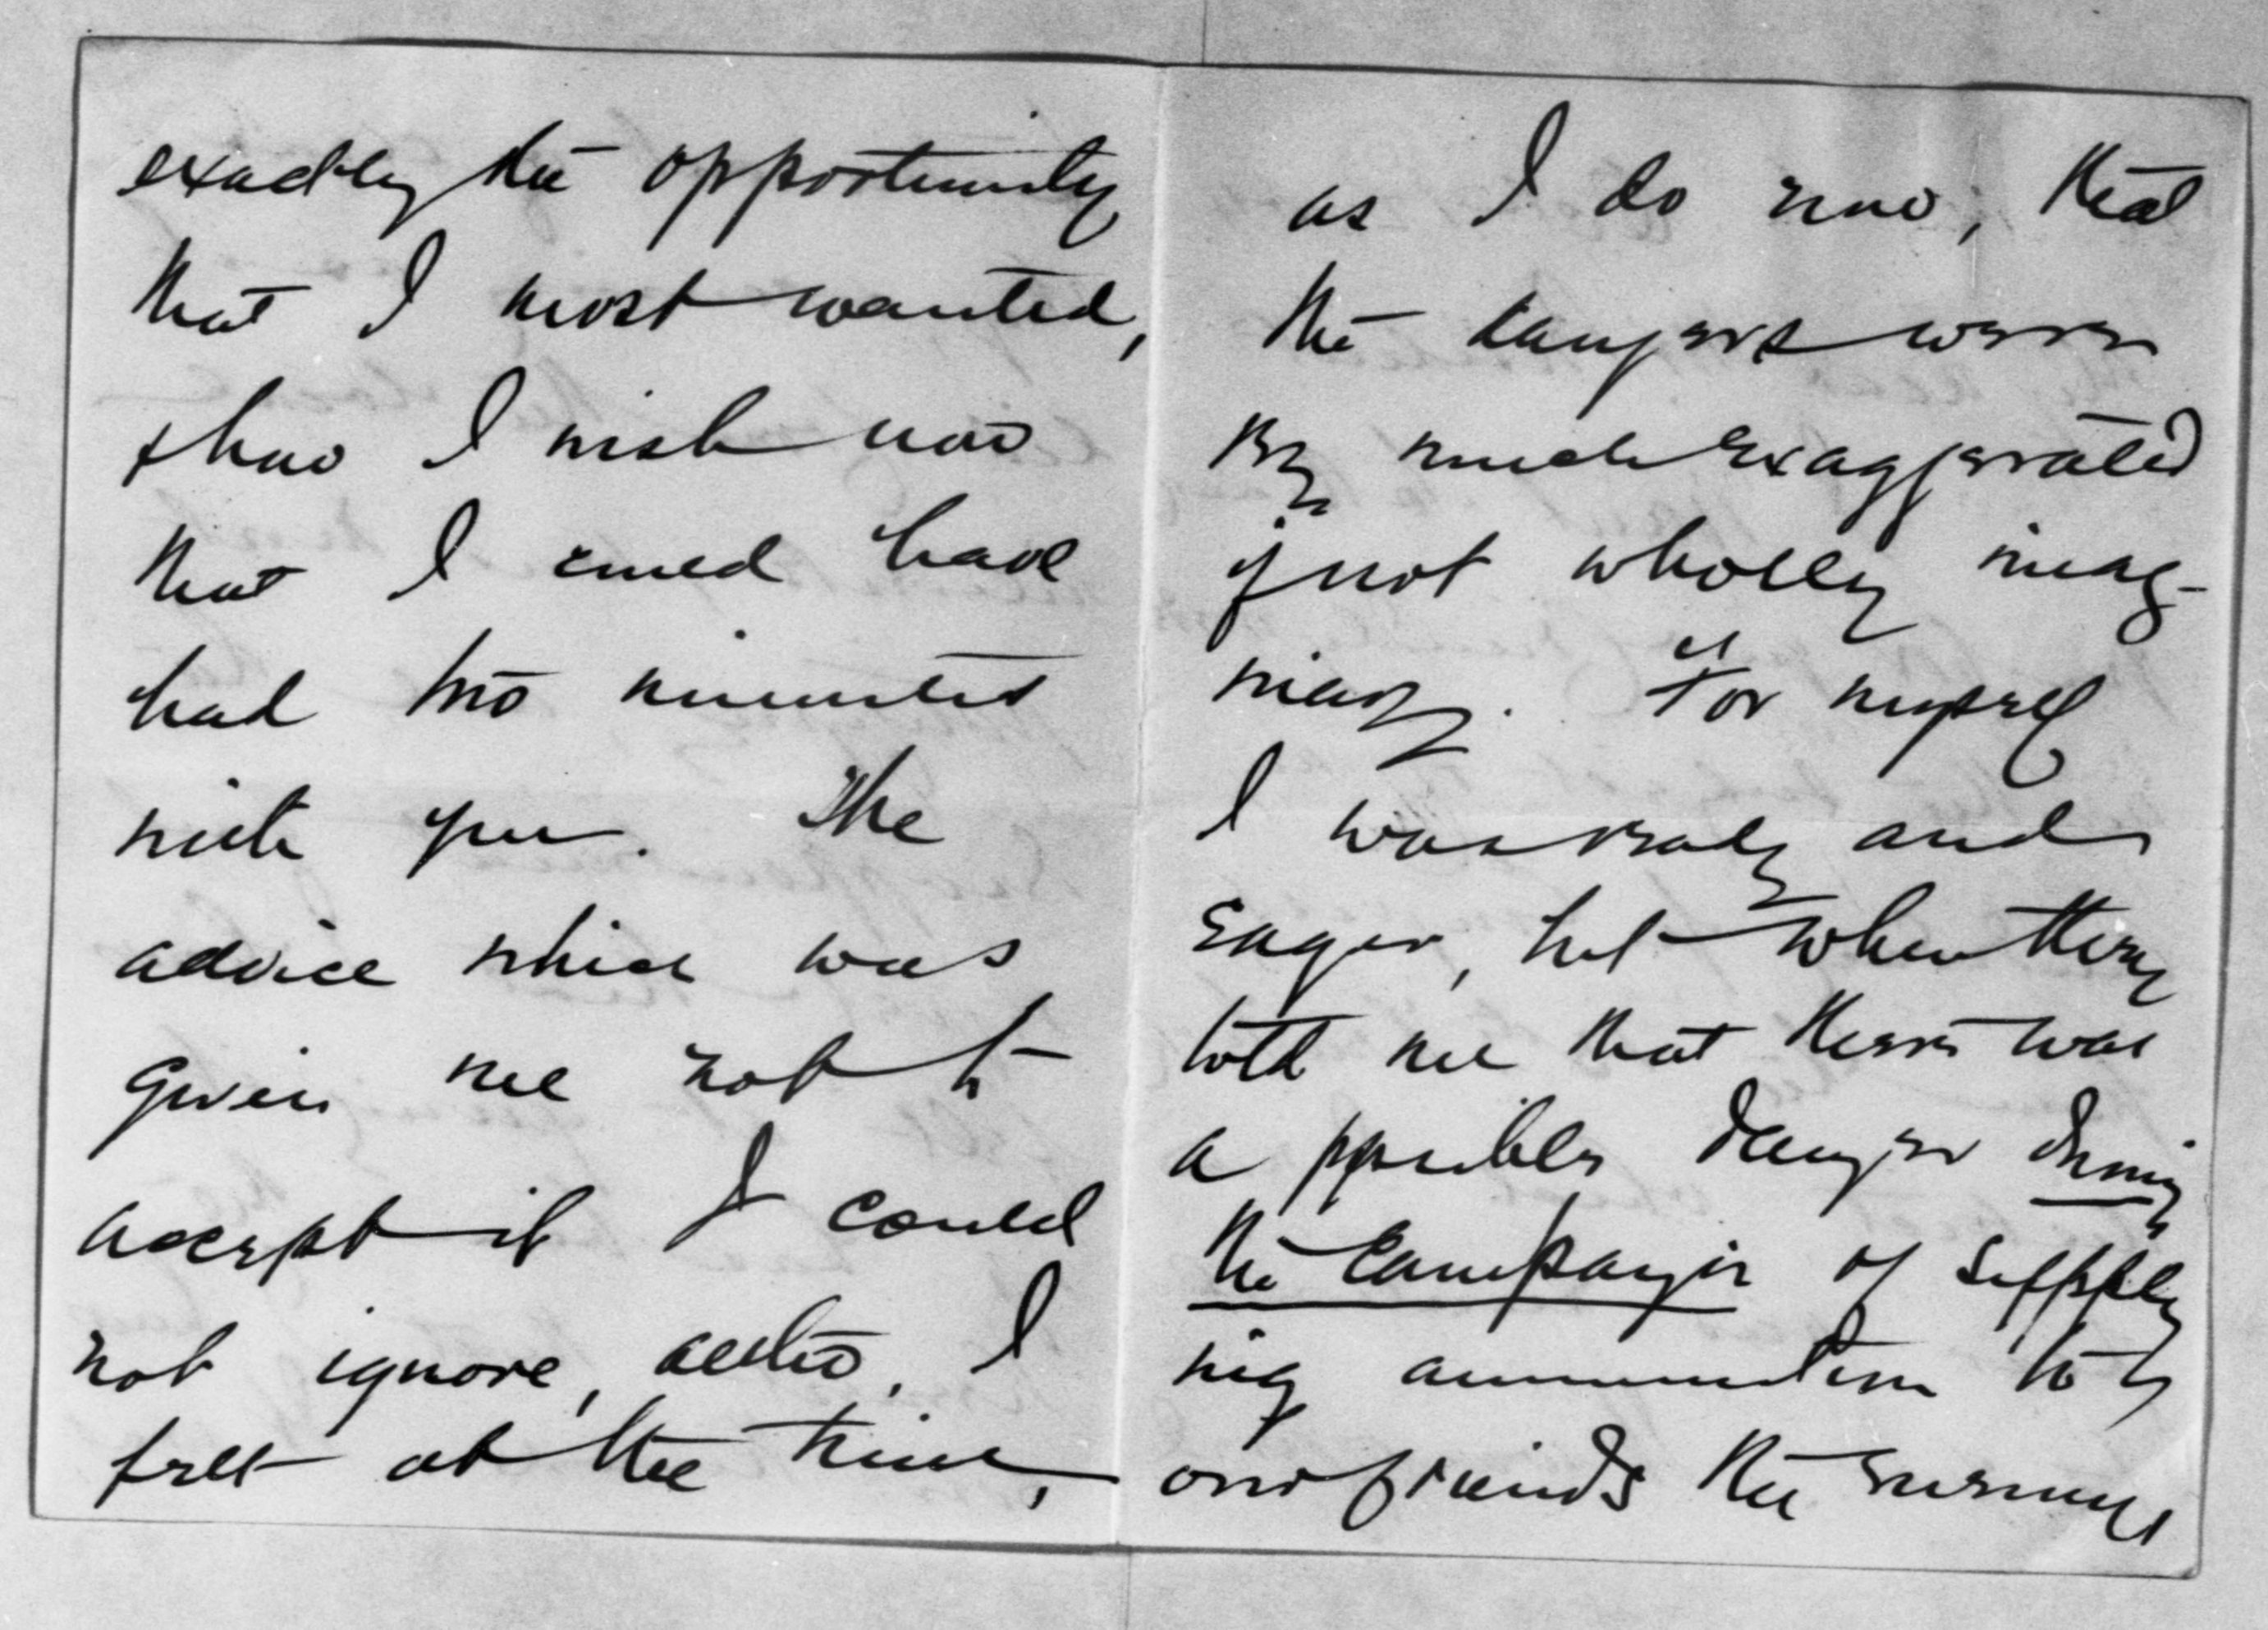 exactly the opportunity
that I most wanted,
& how I wish now
that I could have
had two minutes
with you. The
advice which was
given me not to
accept it I could
not ignore, altho, I
felt at the time,
as I do now, that
the dangers were
much exaggerated
if not wholly imag-
inary. For myself
I was ready and
eager, but when they
told me that there was
a possible danger during
the campaign of supply
ing ammunition to
our friends the enemy